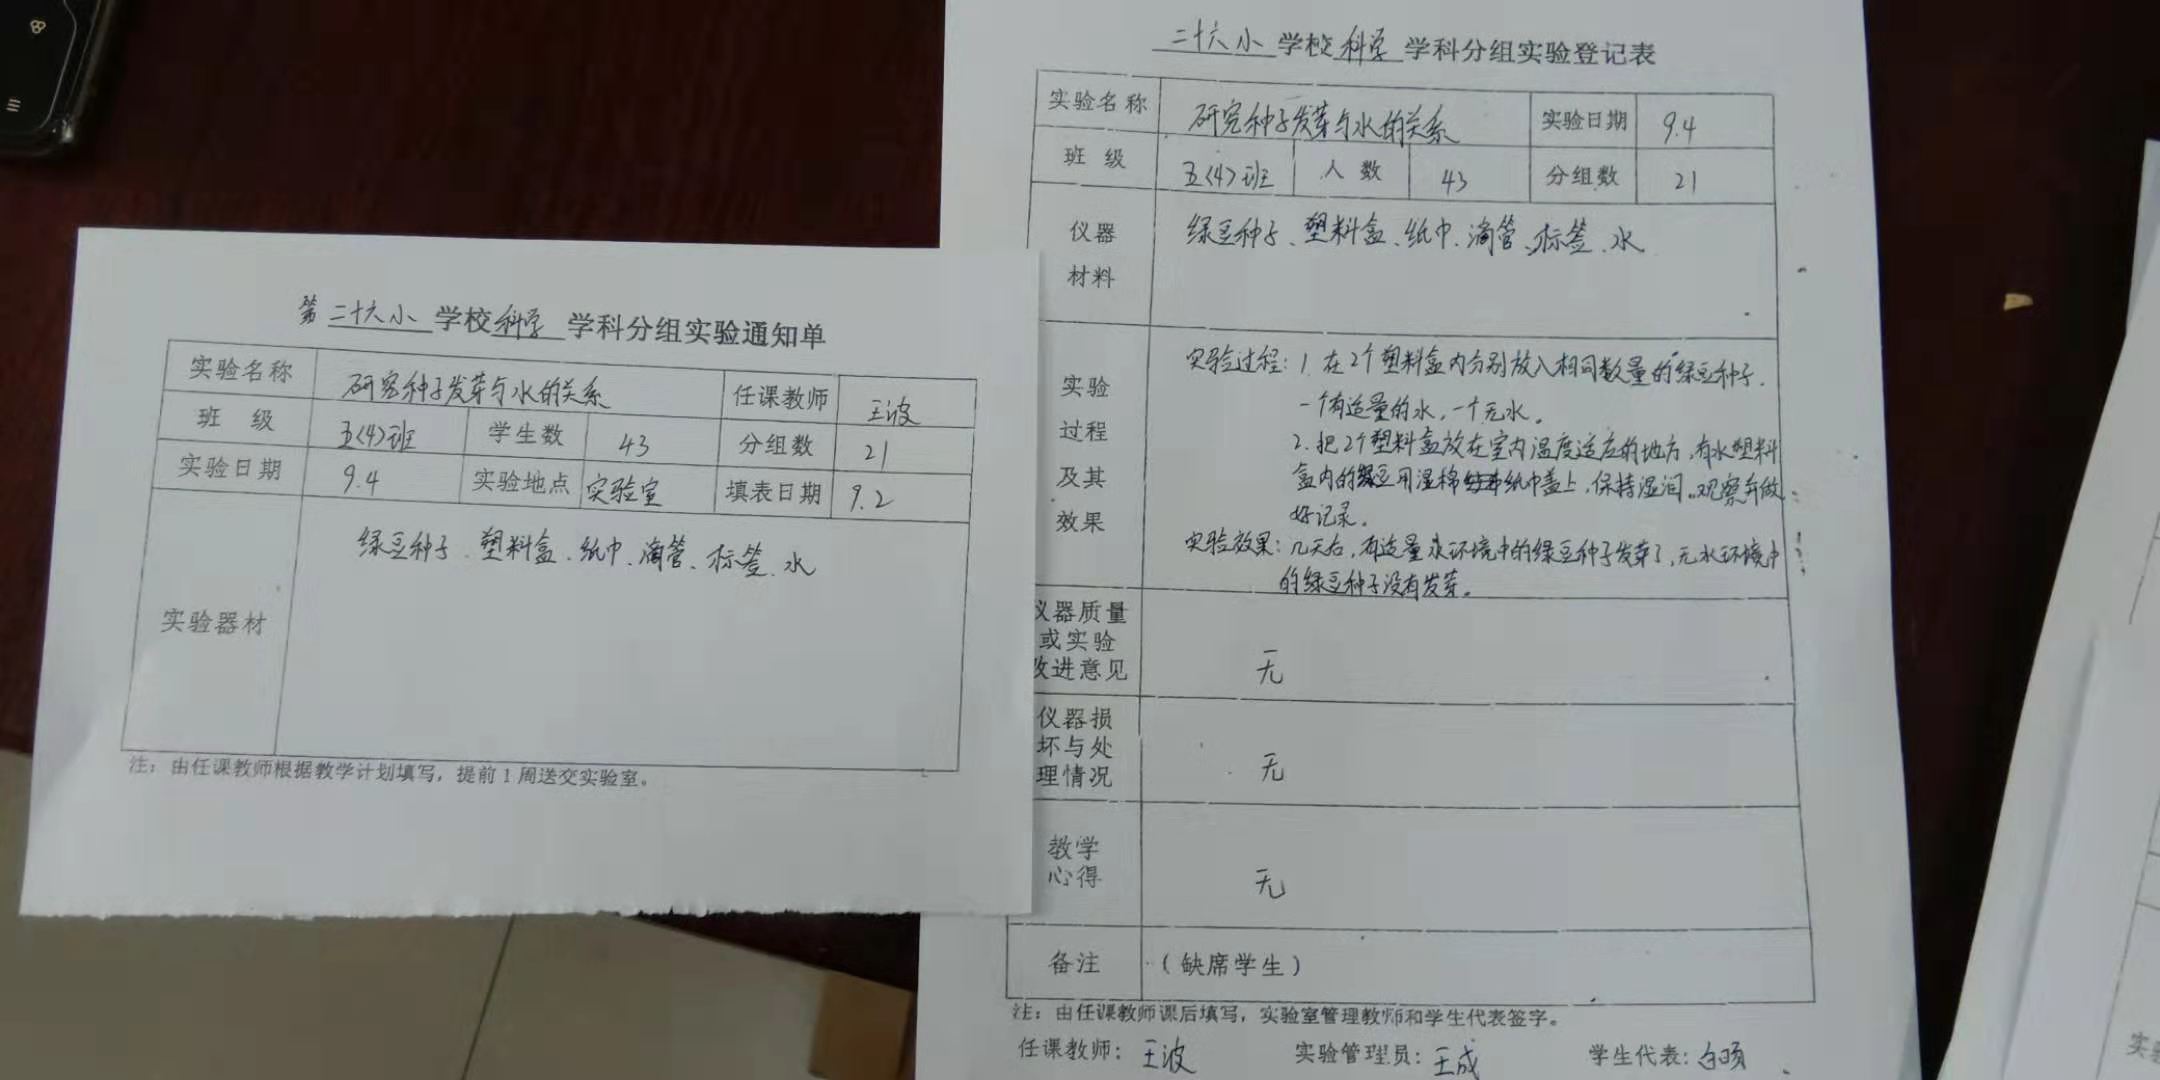 第二十六小学校科学学科分组实验通知单
实验名称 研究种子发芽与水的关系 任课教师 王波
班级 五(4)班 学生数 43 分组数 21
实验日期 9.4 实验地点 实验室 填表日期 9.2
实验器材 绿豆种子、塑料盒、纸巾、滴管、标签、水
注：由任课教师根据教学计划填写，提前1周送交实验室。
二十六小学校科学学科分组实验登记表
实验名称 研究种子发芽与水的关系 实验日期 9.4
班级 五(4)班 人数 43 分组数 21
仪器
材料
绿豆种子、塑料盒、纸巾、滴管、标签、水
实验
过程
及其
效果
实验过程：1. 在2个塑料盒内分别放入相同数量的绿豆种子.
一个有适量的水，一个无水。
2. 把2个塑料盒放在室内温度适应的地方，有水塑料
盒内的绿豆用湿棉纸巾盖上，保持湿润。观察并做
好记录。
实验效果：几天后，有适量水环境中的绿豆种子发芽了，无水环境中
的绿豆种子没有发芽。
仪器质量
或实验
改进意见
无
仪器损
坏与处
理情况
无
教学
心得
无
备注 (缺席学生)
注：由任课教师课后填写，实验室管理教师和学生代表签字。
任课教师：王波 实验管理员：王成 学生代表：